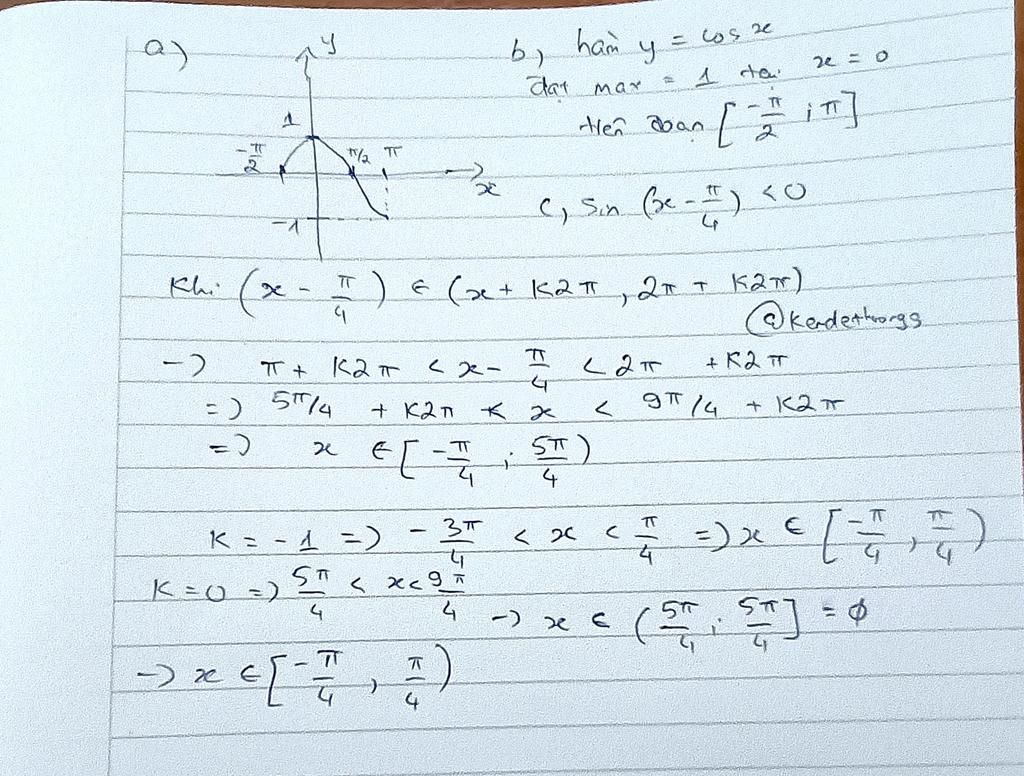 a)
y
1
-π/2
π/2
π
x
-1
b, hàm y = cos x
đạt max = 1 tại x = 0
trên đoạn [-π/2 ; π]
c, sin (x - π/4) < 0
Khi (x - π/4) ∈ (x + K2π, 2π + K2π)
@Kendethorgs
-> π + K2π < x - π/4 < 2π + K2π
=> 5π/4 + K2π < x < 9π/4 + K2π
=> x ∈ [-π/4 ; 5π/4)
K = -1 => -3π/4 < x < π/4 => x ∈ [-π/4, π/4)
K = 0 => 5π/4 < x < 9π/4
-> x ∈ (5π/4 ; 5π/4] = ∅
-> x ∈ [-π/4, π/4)